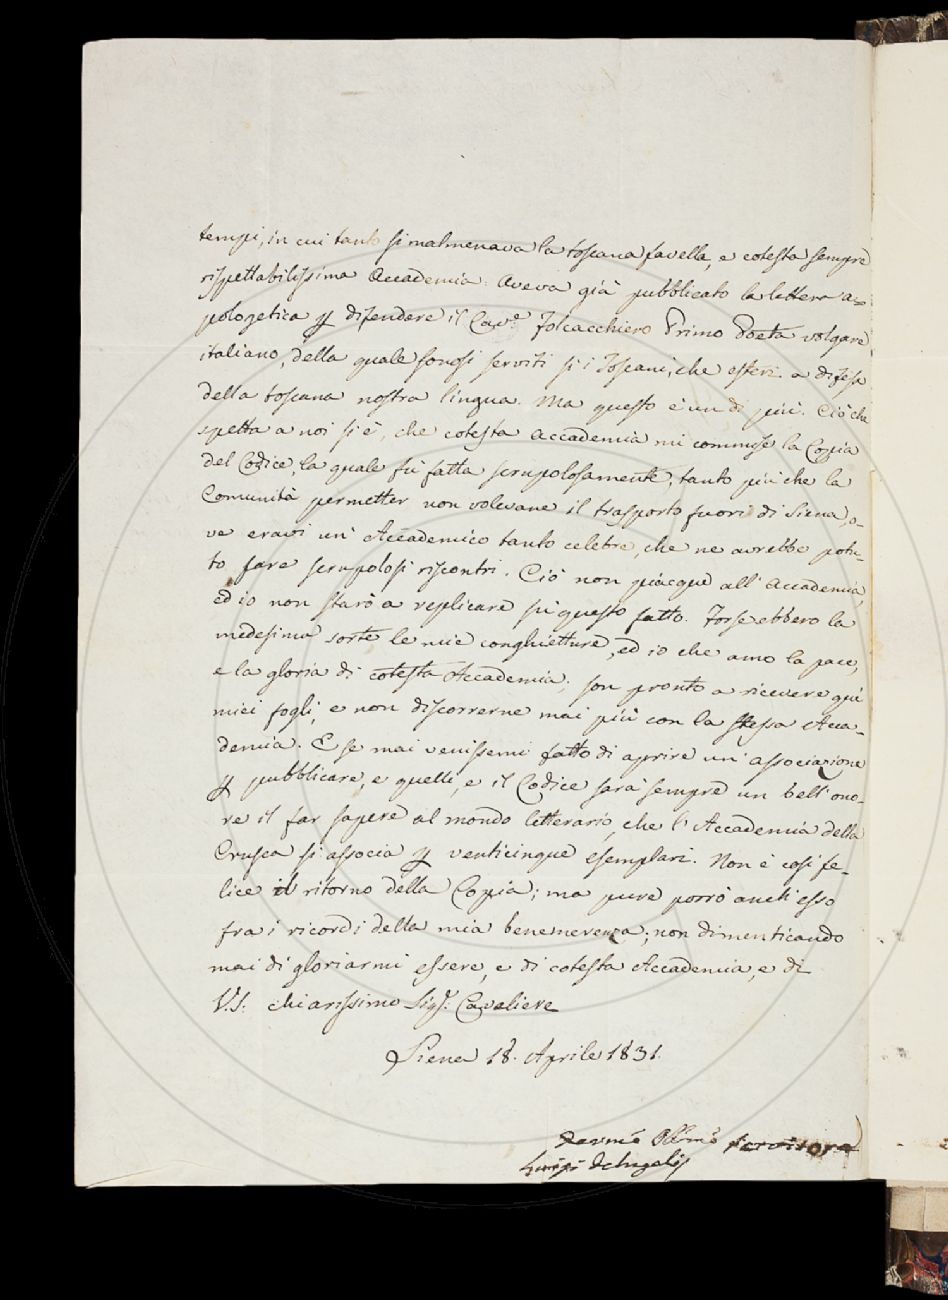 tempi, in cui tanto si malmenava la toscana favella, e cotesta sempre
rispettabilissima Accademia. Aveva già pubblicato la lettera a=
pologetica p difendere il Cav.e Folcacchiero Primo Poeta volgare
italiano, della quale sonosi serviti sì i Toscani, che esteri a difesa
della toscana nostra lingua. Ma questo è un di più. Ciò che
spetta a noi si è, che cotesta Accademia mi commise la Copia
del Codice, la quale fù fatta scrupolosamente, tanto più che la
Comunità permetter non volevane il trasporto fuori di Siena, o-
ve eravi un' Accademico tanto celebre, che ne avrebbe potu-
to fare scrupolosi riscontri. Ciò non piacque all' Accademia,
ed io non starò a replicare sù questo fatto. Forse ebbero la
medesima sorte le mie conghietture, ed io che amo la pace,
e la gloria di cotesta Accademia, son pronto a ricevere quì
miei fogli, e non discorrerne mai più con la stessa Acca-
demia. E se mai venissemi fatto di aprire un' associazione
p pubblicare, e quelli, e il Codice sarà sempre un bell' ono-
re il far sapere al mondo letterario, che l' Accademia della
Crusca si associa p venticinque esemplari. Non è così fe-
lice il ritorno della Copia; ma pure porrò anch' esso
fra i ricordi della mia benemerenza, non dimenticando
mai di gloriarmi essere, e di cotesta Accademia, e di
V.S. chiarissimo Sig.r Cavaliere
Siena 18. Aprile 1831.
Devmo Oblmo servitore
Luigi DeAngelis